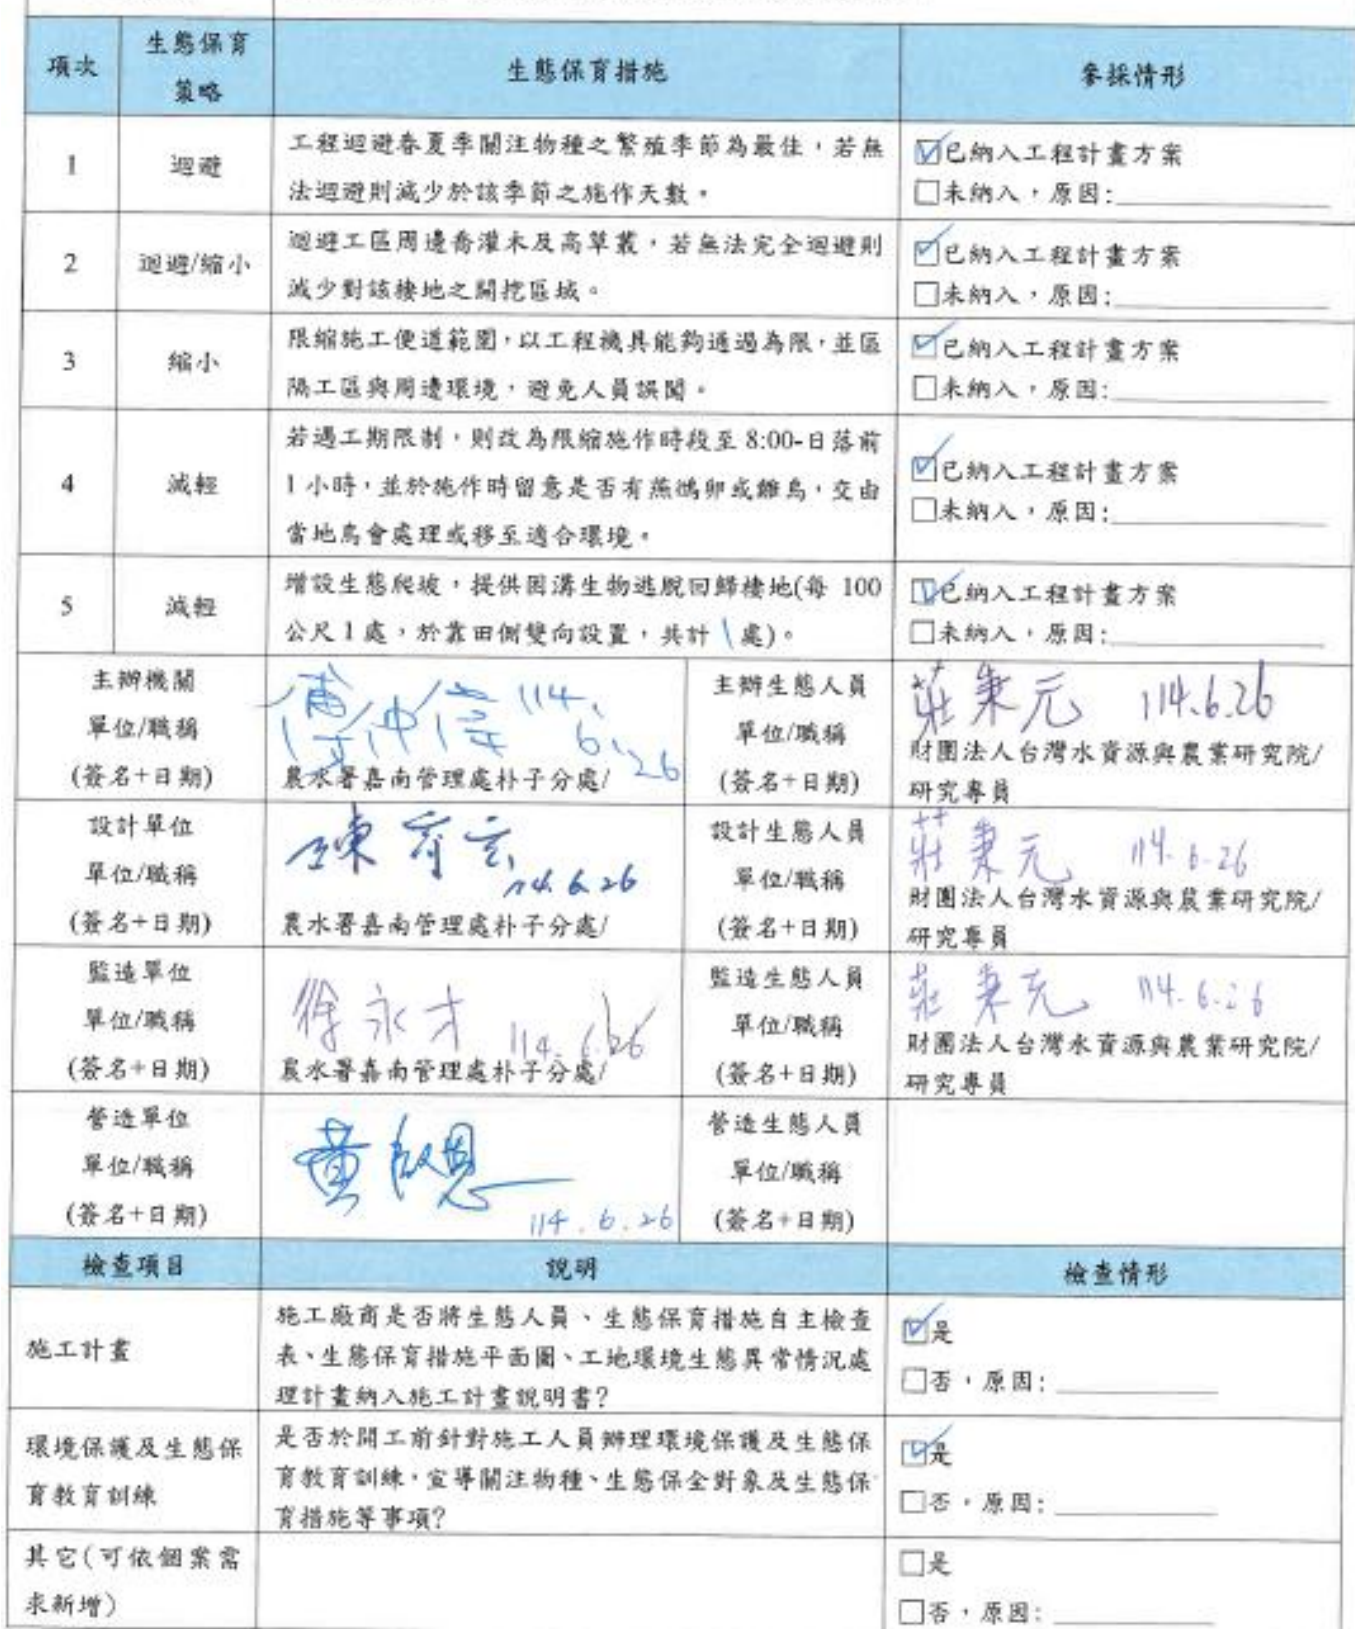 項次
生態保育
策略
生態保育措施
參採情形
1
迴避
工程迴避春夏季關注物種之繁殖季節為最佳,若無
法迴避則減少於該季節之施作天數。
☑已納入工程計畫方案
□未納入,原因:
2
迴避/縮小
迴避工區周邊喬灌木及高草叢,若無法完全迴避則
減少對該棲地之開挖區域。
☑已納入工程計畫方案
□未納入,原因:
3
縮小
限縮施工便道範圍,以工程機具能夠通過為限,並區
隔工區與周邊環境,避免人員誤闖。
☑已納入工程計畫方案
□未納入,原因:
4
減輕
若遇工期限制,則改為限縮施作時段至 8:00-日落前
1 小時,並於施作時留意是否有燕鴴卵或雛鳥,交由
當地鳥會處理或移至適合環境。
☑已納入工程計畫方案
□未納入,原因:
5
減輕
增設生態爬坡,提供困溝生物逃脫回歸棲地(每 100
公尺 1 處,於靠田側雙向設置,共計 1 處)。
☑已納入工程計畫方案
□未納入,原因:
主辦機關
單位/職稱
(簽名+日期)
114.
6.26
農水署嘉南管理處朴子分處/
主辦生態人員
單位/職稱
(簽名+日期)
莊秉元 114.6.26
財團法人台灣水資源與農業研究院/
研究專員
設計單位
單位/職稱
(簽名+日期)
114.6.26
農水署嘉南管理處朴子分處/
設計生態人員
單位/職稱
(簽名+日期)
莊秉元 114.6.26
財團法人台灣水資源與農業研究院/
研究專員
監造單位
單位/職稱
(簽名+日期)
徐永才 114.6.26
農水署嘉南管理處朴子分處/
監造生態人員
單位/職稱
(簽名+日期)
莊秉元 114.6.26
財團法人台灣水資源與農業研究院/
研究專員
營造單位
單位/職稱
(簽名+日期)
114.6.26
營造生態人員
單位/職稱
(簽名+日期)
檢查項目
說明
檢查情形
施工計畫
施工廠商是否將生態人員、生態保育措施自主檢查
表、生態保育措施平面圖、工地環境生態異常情況處
理計畫納入施工計畫說明書?
☑是
□否,原因:
環境保護及生態保
育教育訓練
是否於開工前針對施工人員辦理環境保護及生態保
育教育訓練,宣導關注物種、生態保全對象及生態保
育措施等事項?
☑是
□否,原因:
其它(可依個案需
求新增)
□是
□否,原因: